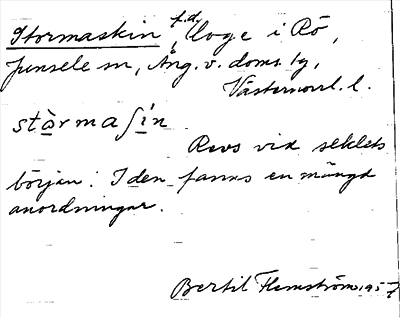 Stormaskin, f.d. loge i Rö,
Junsele sn, Ång. v. doms. tg,
Västernorrl. l.
stòrmaʃín
Revs vid seklets
början. I den fanns en mängd
anordningar.
Bertil Flemström 1957